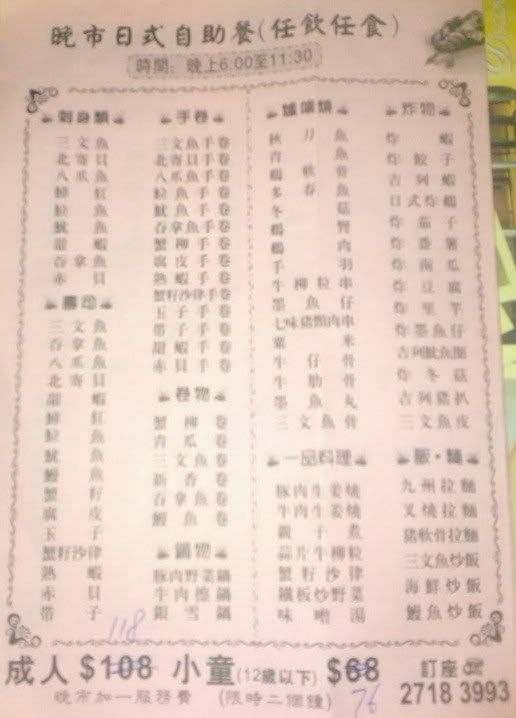 晚市日式自助餐(任飲任食)
時間: 晚上6:00至11:30
刺身類
三文魚
北寄貝
八爪魚
鯡紅
魷魚
甜蝦
吞拿魚
赤貝
壽司
三文魚
吞拿魚
八爪魚
北寄貝
甜蝦
鯡紅
魷魚
鰻魚
蟹籽
腐皮
玉子
蟹籽沙律
熟蝦
赤貝
帶子
手卷
三文魚手卷
北寄貝手卷
八爪魚手卷
魷魚手卷
吞拿魚手卷
蟹柳手卷
腐皮手卷
熟蝦手卷
蟹籽沙律手卷
玉子手卷
帶子手卷
甜蝦手卷
赤貝手卷
卷物
蟹柳卷
青瓜卷
三文魚卷
新香卷
吞拿魚卷
鰻魚卷
鍋物
豚肉野菜鍋
牛肉鍋
銀雪鍋
爐端燒
秋刀魚
青魚
鷄軟骨
多春魚
冬菇
鷄腎
鷄肉
手羽
牛柳粒串
墨魚仔
七味豬頸肉串
粟米
牛仔骨
牛肋骨
墨魚丸
三文魚骨
一品料理
豚肉生姜燒
牛肉生姜燒
親子煮
蒜片牛柳粒
蟹籽沙律
鐵板炒野菜
味噌湯
炸物
炸蝦
炸餃子
吉列蝦
日式炸鷄
炸茄子
炸番薯
炸南瓜
炸豆腐
炸里芋
炸墨魚仔
吉列魷魚圈
炸冬菇
吉列豬扒
三文魚皮
飯·麵
九州拉麵
叉燒拉麵
豬軟骨拉麵
三文魚炒飯
海鮮炒飯
鰻魚炒飯
118
成人 $108 小童(12歲以下) $68
76
晚市加一服務費 (限時二個鐘)
訂座
2718 3993